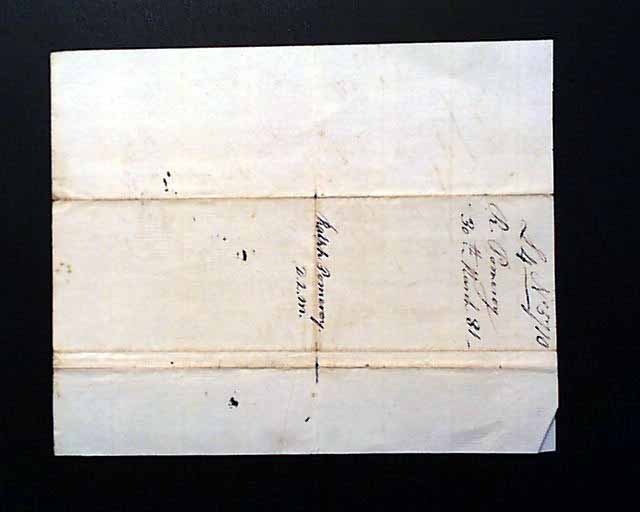 R. Pomeroy
30th March 81
Ralph Pomeroy
D.Q.M.